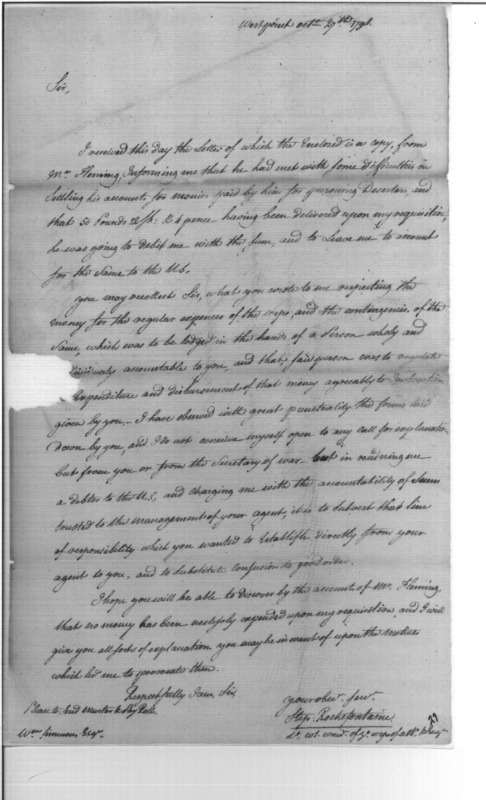 Westpoint octr 29th 1796.
Sir,
I received this day the Letter of which the Enclosed is a copy, from
Mr. Fleming, Informing me that he had met with some difficulties in
Settling his accounts, for monies paid by him for pursuing Deserters, and
that 50 Pounds 12 Sh. & 6 pence having been delivered upon my requisition,
he was going to debit me with the sum, and to Leave me to account
for the Same to the U.S.
you may recollect Sir, what you wrote to me respecting the
money for the regular expences of the corps, and the contingencies of the
Same, which was to be lodged in the hands of a Person wholy and
accountable to you, and that, said person was to regulate
Expenditure and disbursement of that money agreably to
given by you. I have observed with great punctuality the forms laid
Down by you, and I do not conceive myself open to any call for explanation
but from you or from the Secretary of war but in rendering me
a debtor to the U.S, and charging me with the accountability of Sums
trusted to the management of your agent, it is to subvert that line
of responsibility which you wanted to Establish directly from your
agent to you, and to substitute confusion to good order.
I hope you will be able to discover by the accounts of Mr. Fleming,
that no money has been uselessly expended upon my requisition, and I will
give you all sorts of explanation you may be in want of upon the motives
which led me to provocate them.
Respectfully I am, Sir,
your obedt. servt.
Please to Send Muster & Pay Rolls.
Step. Rochefontaine
Wm Simmons Esqr.
Lt. col. comdt. of ye. corps of
27